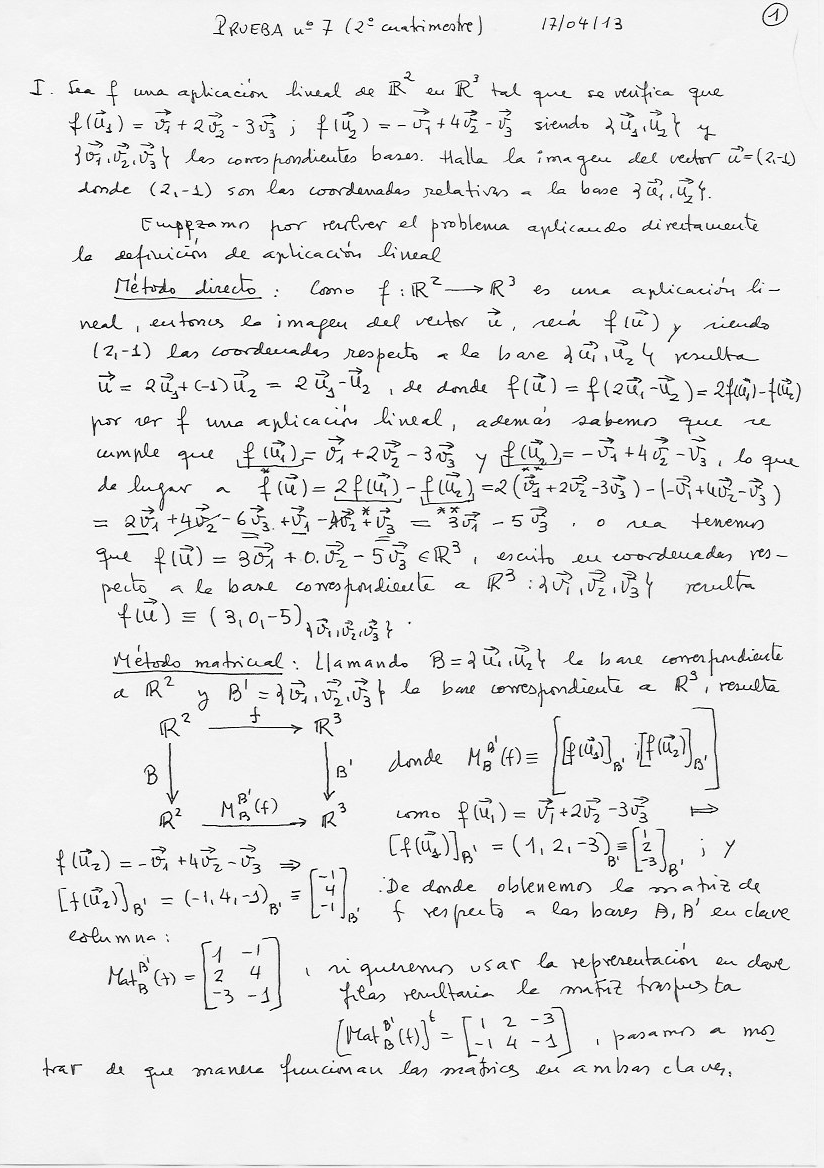 PRUEBA nº 7 (2º cuatrimestre) 17/04/13 ①
I. Sea f una aplicación lineal de ℝ² en ℝ³ tal que se verifica que
f(u⃗₁) = v⃗₁ + 2v⃗₂ - 3v⃗₃ ; f(u⃗₂) = -v⃗₁ + 4v⃗₂ - v⃗₃ siendo {u⃗₁, u⃗₂} y
{v⃗₁, v⃗₂, v⃗₃} las correspondientes bases. Halla la imagen del vector u⃗ = (2,-1)
donde (2,-1) son las coordenadas relativas a la base {u⃗₁, u⃗₂}.
Empezamos por resolver el problema aplicando directamente
la definición de aplicación lineal
Método directo : Como f : ℝ² → ℝ³ es una aplicación li-
neal, entonces la imagen del vector u⃗, será f(u⃗) y siendo
(2,-1) las coordenadas respecto a la base {u⃗₁, u⃗₂} resulta
u⃗ = 2u⃗₁ + (-1)u⃗₂ = 2u⃗₁ - u⃗₂ , de donde f(u⃗) = f(2u⃗₁ - u⃗₂) = 2f(u⃗₁) - f(u⃗₂)
por ser f una aplicación lineal, además sabemos que se
cumple que f(u⃗₁) = v⃗₁ + 2v⃗₂ - 3v⃗₃ y f(u⃗₂) = -v⃗₁ + 4v⃗₂ - v⃗₃ , lo que
* **
da lugar a f(u⃗) = 2f(u⃗₁) - f(u⃗₂) = 2(v⃗₁ + 2v⃗₂ - 3v⃗₃) - (-v⃗₁ + 4v⃗₂ - v⃗₃)
* **
= 2v⃗₁ + 4v⃗₂ - 6v⃗₃ + v⃗₁ - 4v⃗₂ + v⃗₃ = 3v⃗₁ - 5v⃗₃ . o sea tenemos
que f(u⃗) = 3v⃗₁ + 0.v⃗₂ - 5v⃗₃ ∈ ℝ³, escrito en coordenadas res-
pecto a la base correspondiente a ℝ³ : {v⃗₁, v⃗₂, v⃗₃} resulta
f(u⃗) ≡ (3, 0, -5){v⃗₁, v⃗₂, v⃗₃} .
Método matricial : Llamando B = {u⃗₁, u⃗₂} la base correspondiente
a ℝ² y B' = {v⃗₁, v⃗₂, v⃗₃} la base correspondiente a ℝ³, resulta
ℝ² f ℝ³
B B' donde M_B^B'(f) ≡ [[f(u⃗₁)]_B' ; [f(u⃗₂)]_B']
ℝ² M_B^B'(f) ℝ³ como f(u⃗₁) = v⃗₁ + 2v⃗₂ - 3v⃗₃ ⟹
[f(u⃗₁)]_B' = (1, 2, -3)_B' ≡ [1 2 -3]_B' ; y
f(u⃗₂) = -v⃗₁ + 4v⃗₂ - v⃗₃ ⟹
[f(u⃗₂)]_B' = (-1, 4, -1)_B' ≡ [-1 4 -1]_B' . De donde obtenemos la matriz de
f respecto a las bases B, B' en clave
columna :
Mat_B^B'(f) = [1 -1
2 4
-3 -1] , si queremos usar la representación en clave
filas resultaria la matriz traspuesta
[Mat_B^B'(f)]^t = [1 2 -3
-1 4 -1] , pasamos a mos
trar de que manera funcionan las matrices en ambas claves.